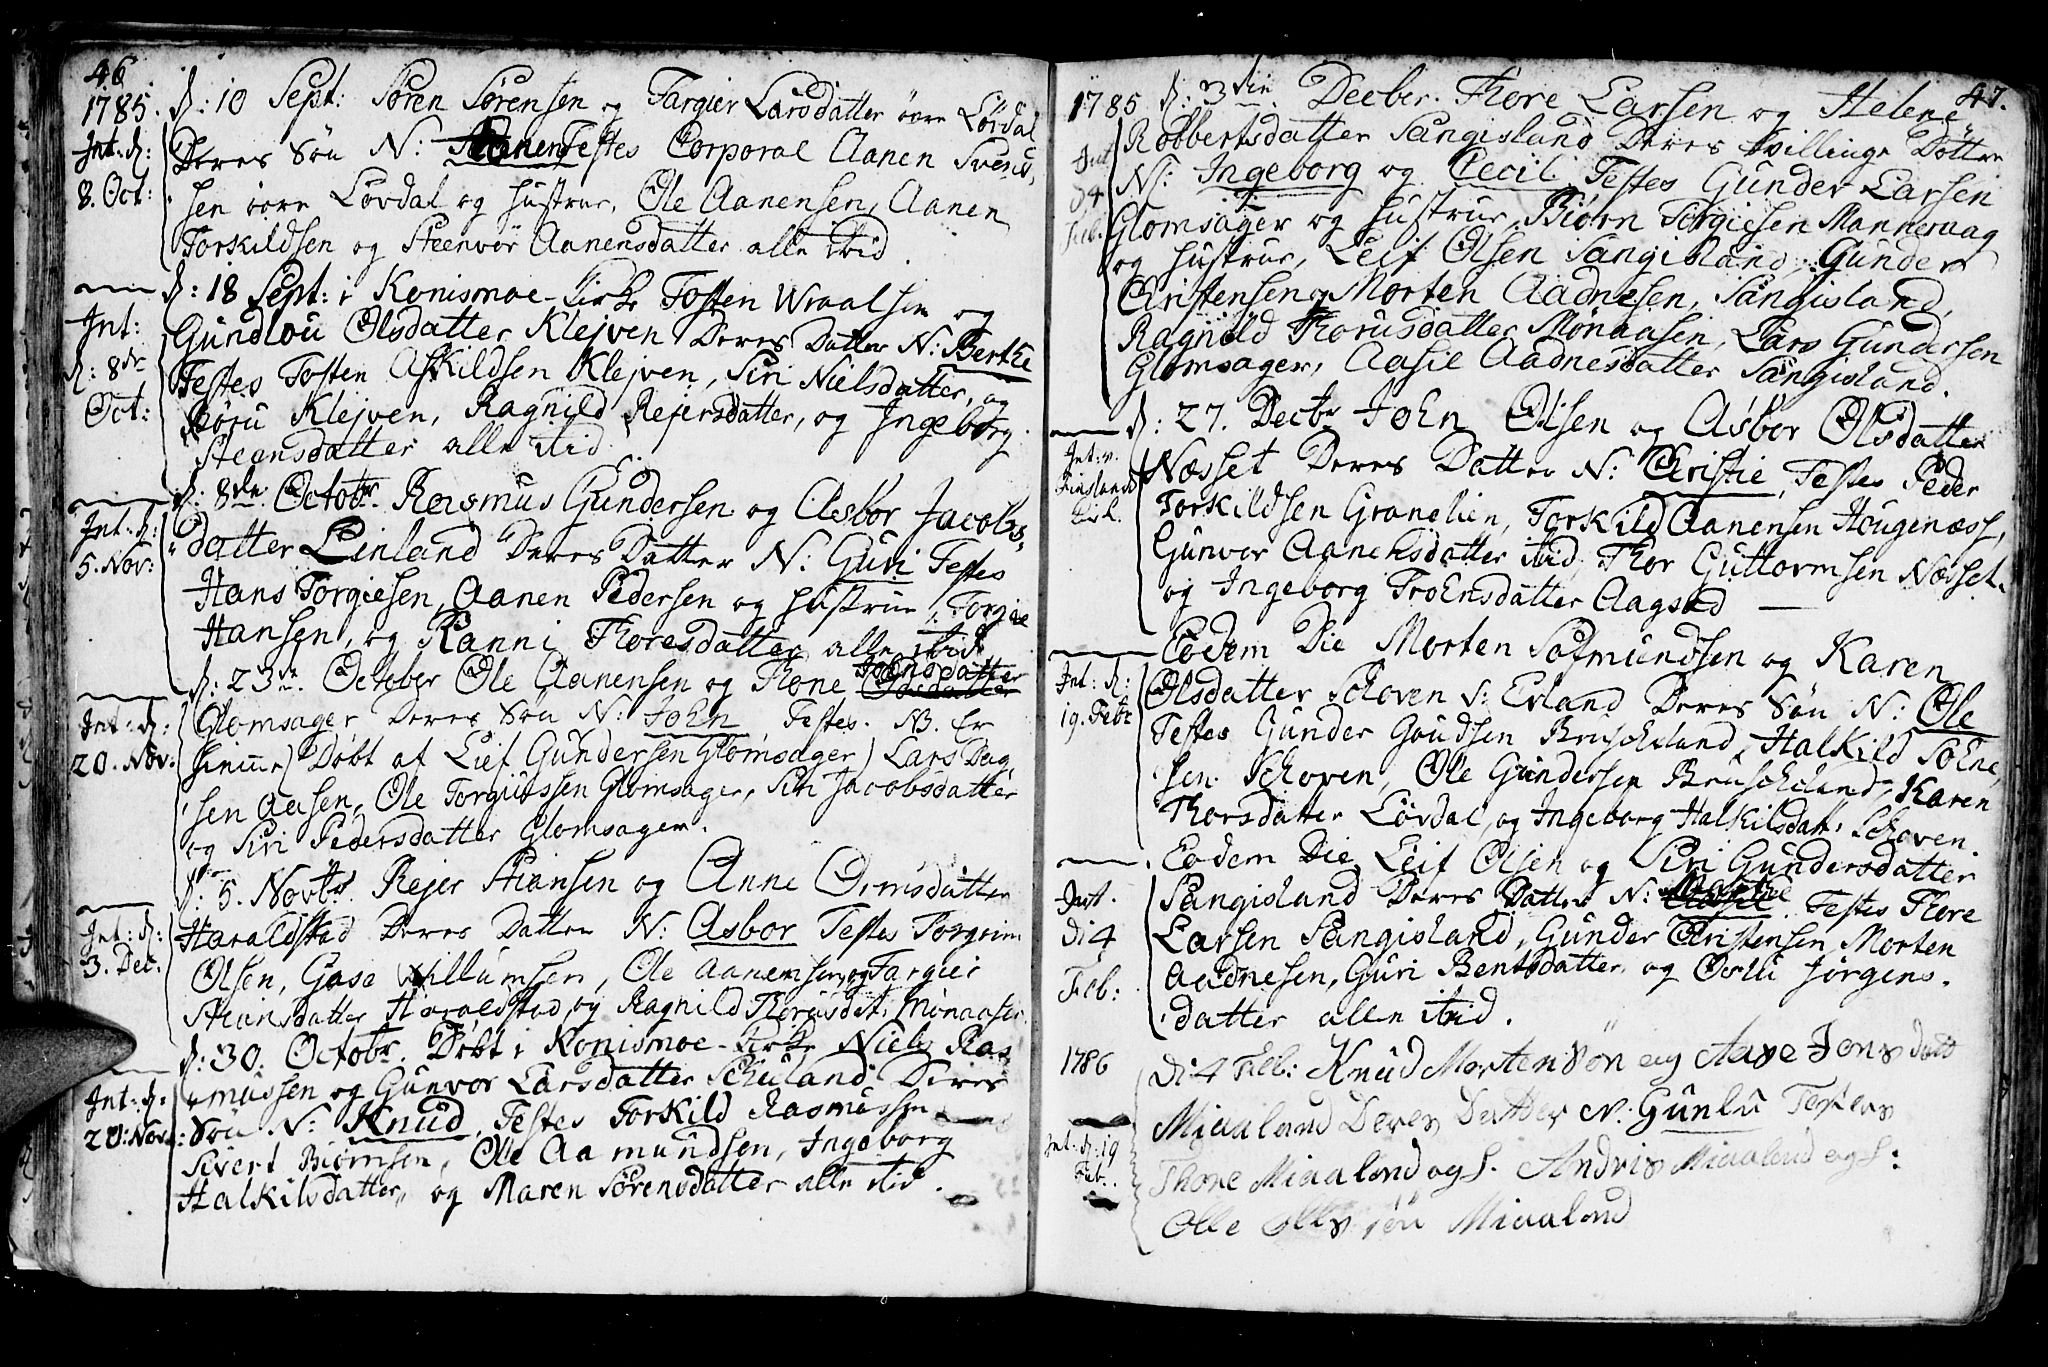 46.
1785. d: 10 Sept: Søren Sørensen og Targier Larsdatter øvre Lövdal
Int: d: Deres Sön N: Aanen Testes Corporal Aanen Svens,
8. Oct: sen øvre Lövdal og Hustrue, Ole Aanensen, Aanen
Torkildsen og Steenvör Aanensdatter alle ibid.
d: 18 Sept: i Konismoe-Kirke Tosten Wraalsen og
Int: Gundlou Olsdatter Klejven Deres Datter N: Berthe
d: 8de Testes Tosten Askildsen Klejven, Siri Nielsdatter, og
Oct: Klejven, Ragnild Rejersdatter, og Ingeborg
Steensdatter alle ibid
d: 8de Octobr. Rasmus Gundersen og Asbor Jacobs,
Int: d: datter Linland Deres Datter N: Guri Testes
5. Nov: Hans Torgiesen, Aanen Pedersen og Hustrue, Torgie
Hansen, og Ranni Thoresdatter alle ibid
d: 23de October Ole Aanensen og Thone Johnsdatter
Int: d: Glomsager Deres Sön N: John Testes. NB. Er
20. Nov: hiemme Døbt af Lief Gundersen Glomsager) Lars Dag,
sen Aasen, Ole Torgiussen Glomsager, Siri Jacobsdatter
og Siri Pedersdatter Glomsager.
d: 5. Novbr. Rejer Stiansen og Anne Ormsdatter
Int: d: Haraldstad Deres Datter N: Asbor Testes Torgrim
3. Dec. Olsen, Gase Willumsen, Ole Aanensen, og Targier
Stiansdatter Haraldstad, og Ragnild Thorusdat: Mönaasen.
d: 30. Octobr. Døbt i Konismoe-Kirke Niels Ras,
Int: d: mussen og Gunvor Larsdatter Deres
20: Nov: Sön N: Knud, Testes Torkild Rasmussen
Sivert Biørnsen, Ole Aamundsen, Ingeborg
Halkilsdatter, og Maren Sørensdatter alle ibid.
47.
1785 d: 3die Decbr. Thore Larsen og Helene
Robbertsdatter Sangisland Deres tvillinge Döttre
Int N: Ingeborg og Cecil Testes Gunder Larsen
d 4 Glomsager og Hustrue, Biørn Torgiesen Mannevaag
Feb. og Hustrue, Leif Olsen Sangisland, Gunder
Cristensen og Morten Aadnesen, Sangisland,
Ragnild Thorusdatter Mønaasen, Lars Gundersen
Glomsager, Aasie Aadnesdatter Sangisland.
d: 27. Decbr John Olsen og Asbor Olsdatter
Int: v. Næsset Deres Datter N: Cristie, Testes Peder
Finslands Kirk. Torkildsen Granelien, Torkild Aanensen Hougenæss,
Gunvor Aanensdatter ibid, Thor Guttormsen Næsset
og Ingeborg Troensdatter Aagsed —
Eodem Die Morten Salmundsen og Karen
Int: d: Olsdatter Schoven v: Evland Deres Sön N: Ole
19. Febr Testes Gunder Goudsen Bruscheland, Halkild Sohne,
sen Schoven, Ole Gundersen Bruscheland, Karen
Thorsdatter Lövdal, og Ingeborg Halkilsdatt: Schoven.
Eodem Die Leif Olsen og Siri Gundersdatter
Int. Sangisland Deres Datter N: Testes Thore
D: 4 Larsen Sangisland, Gunder Cristensen, Morten
Feb: Aadnesen, Guri Bentsdatter og Jørgens,
datter alle ibid.
1786 D: 4 Feb: Knud Mortensön og Aase Jonsdatt
Miaaland Deres Datter N: Gunlu Testes
Int: d: 19 Feb: Thore Miaaland og H. Andris Miaaland og H:
Olle Ollssön Miaaland